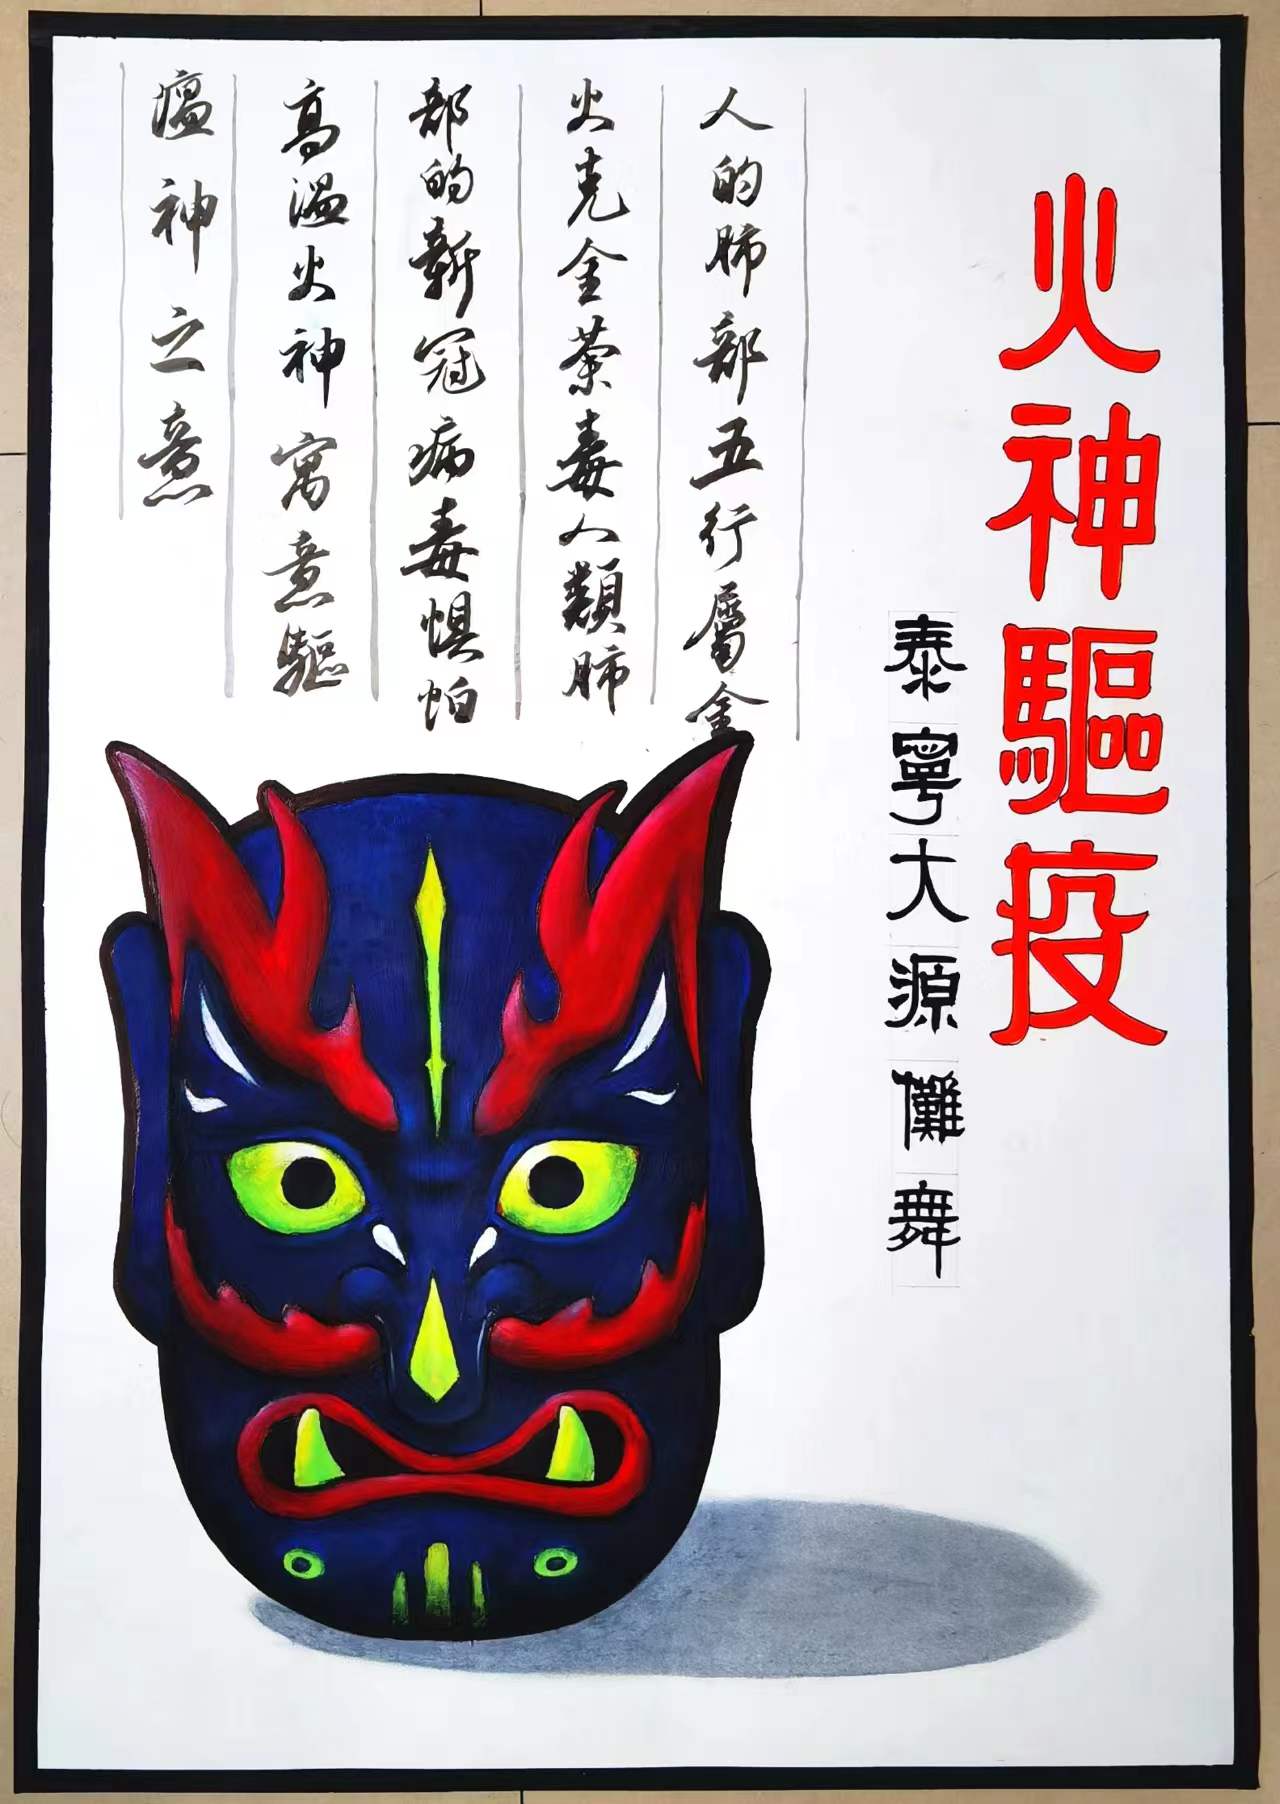 火神驅疫
泰寧大源儺舞
人的肺部五行屬金
火克金荼毒人類肺
部的新冠病毒惧怕
高温火神寓意驅
瘟神之意